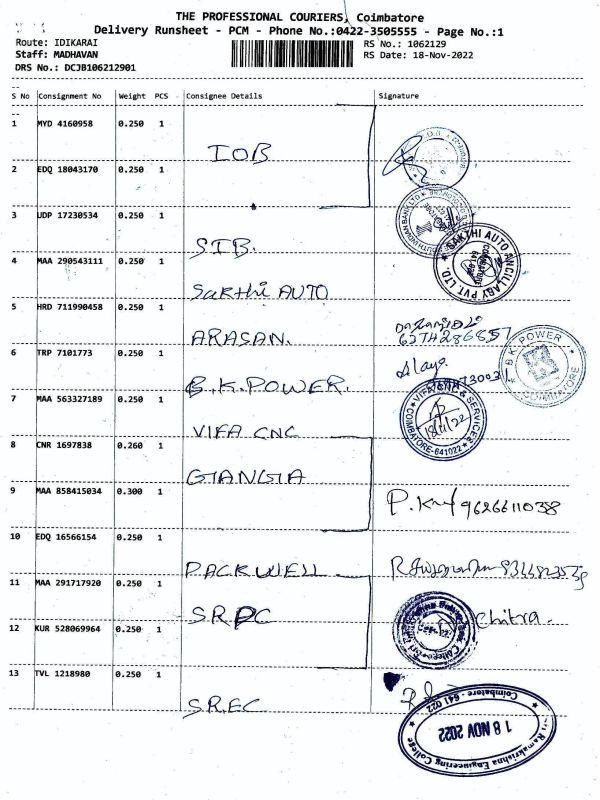 THE PROFESSIONAL COURIERS, Coimbatore
Delivery Runsheet - PCM - Phone No.:0422-3505555 - Page No.:1
Route: IDIKARAI
RS No.: 1062129
Staff: MADHAVAN
RS Date: 18-Nov-2022
DRS No.: DCJB106212901
S No Consignment No Weight PCS Consignee Details Signature
1 MYD 4160958 0.250 1
IOB
2 EDQ 18043170 0.250 1
3 UDP 17230534 0.250 1
SIB.
4 MAA 290543111 0.250 1
SAKTHI AUTO ANCILLARY PVT. LTD.
COIMBATORE
Sakthi AUTO
5 HRD 711990458 0.250 1
ARASAN.
6 TRP 7101773 0.250 1
B.K. POWER
COIMBATORE
B.K.POWER.
7 MAA 563327189 0.250 1
VIFA CNC & SERVICES
COIMBATORE-641022
18/11/22
VIFA CNC
8 CNR 1697838 0.260 1
GIANGIA
9 MAA 858415034 0.300 1
9626611038
10 EDQ 16566154 0.250 1
PACKWELL
11 MAA 291717920 0.250 1
SRPC
Chitra.
12 KUR 528069964 0.250 1
13 TVL 1218980 0.250 1
SREC
Ramakrishna Engineering College
18 NOV 2022
Coimbatore - 641 022